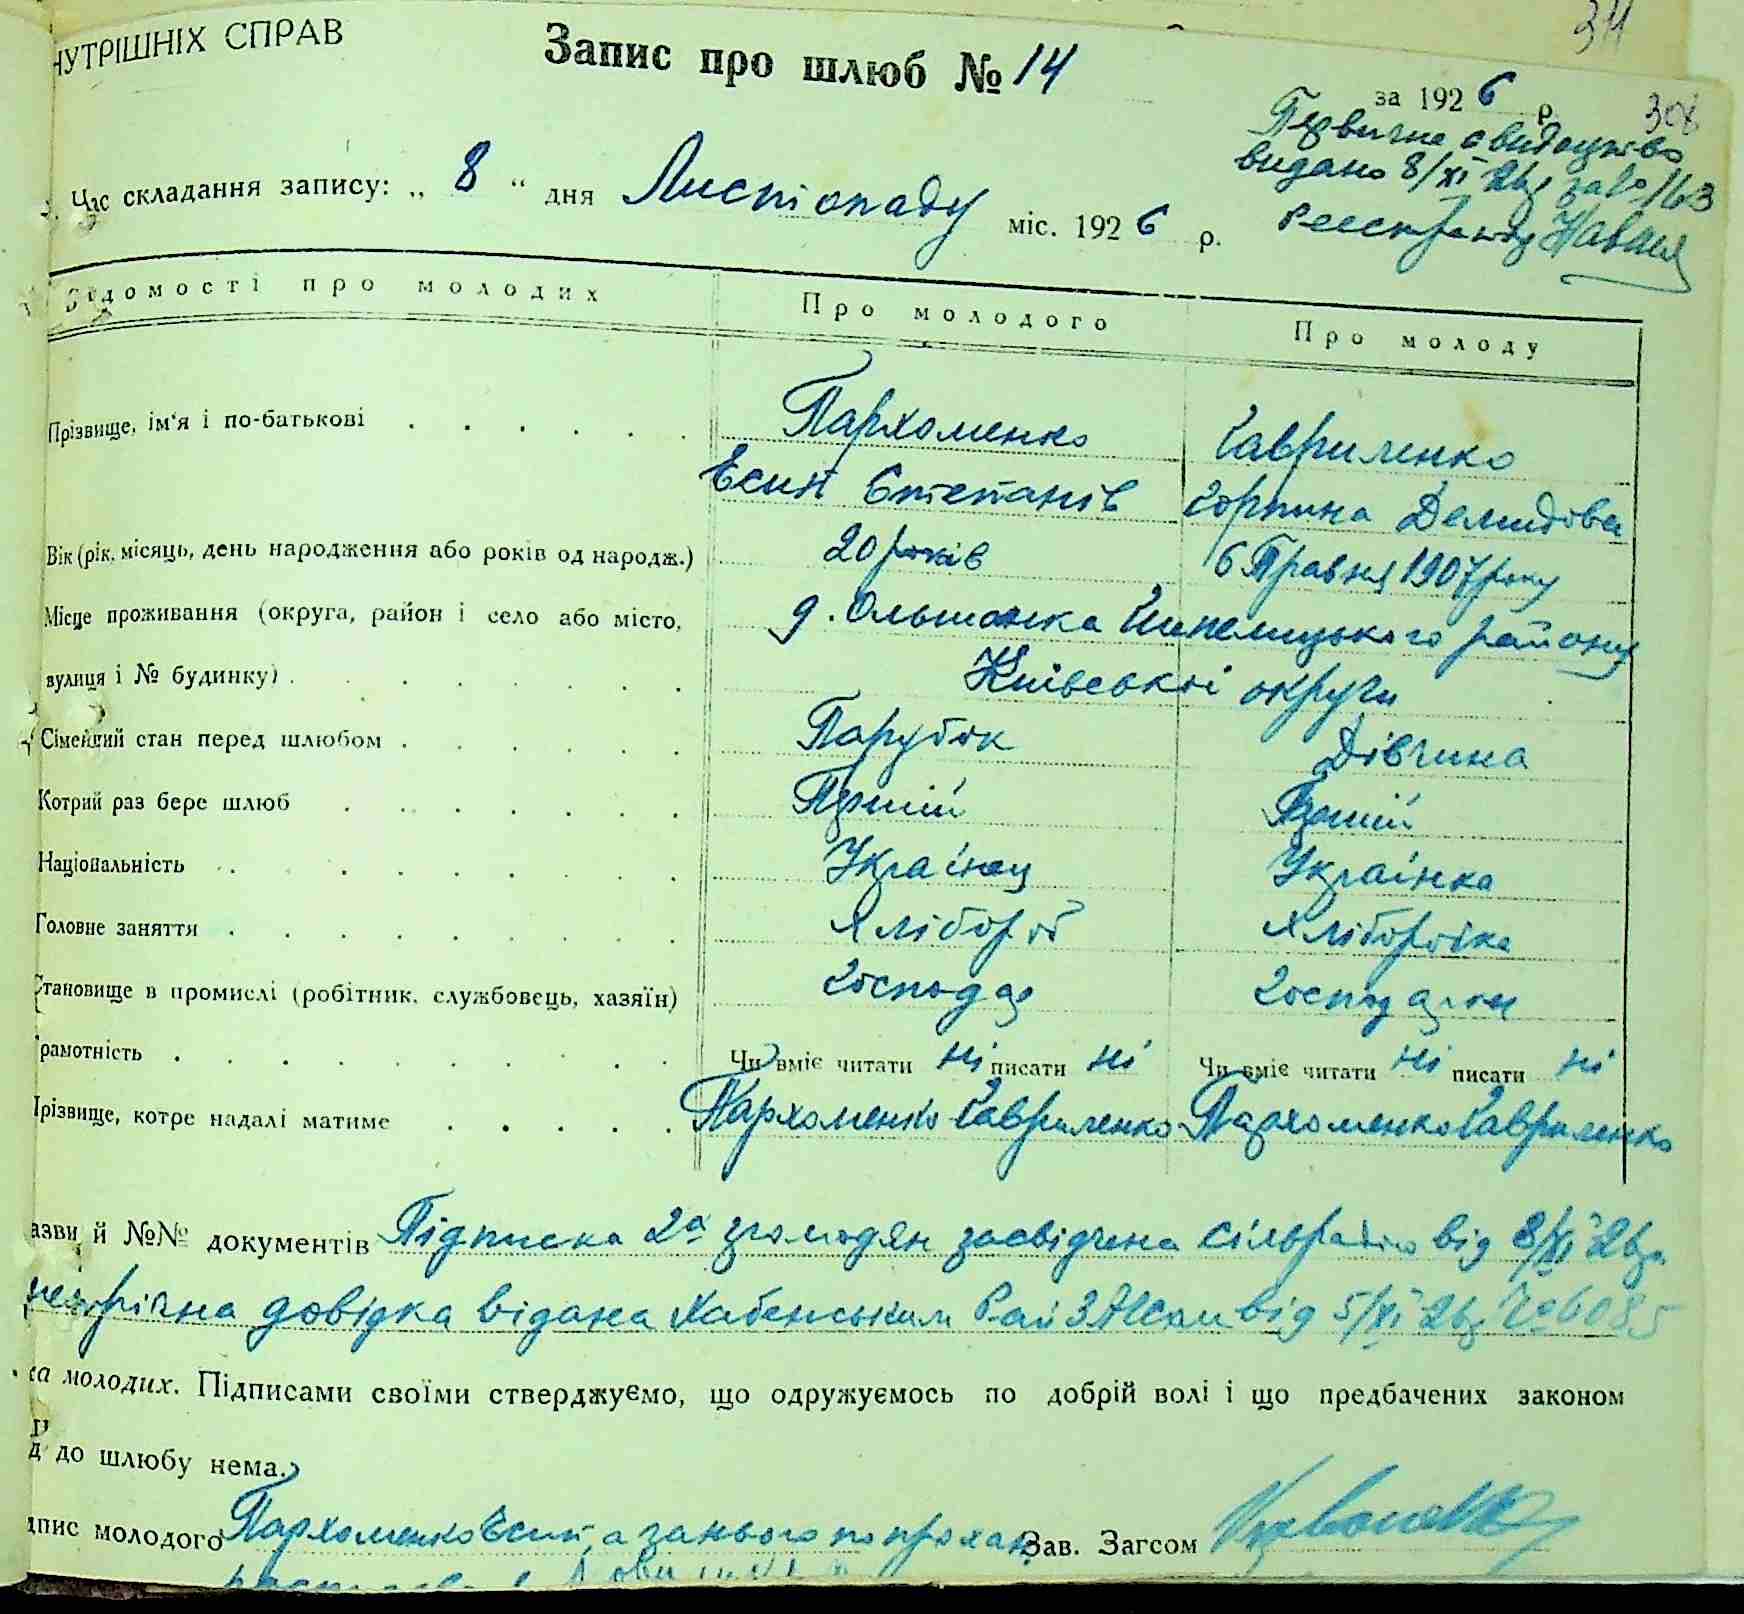 НУТРІШНІХ СПРАВ
311
Запис про шлюб № 14
за 1926 р.
308
Первичне свидоцтво
видано 8/XI 26р за № 163
Час складання запису: „ 8 “ дня Листіопаду міс. 1926 р.
Відомості про молодих Про молодого Про молоду
Прізвище, ім'я і по-батькові Пархоменко Гавриленко
Есип Степанів Горпина Демидова
Вік (рік, місяць, день народження або років од народж.) 20 років 6 Травня 1907 року
Місце проживання (округа, район і село або місто, д. Ольшанка Шепелицького району
вулиця і № будинку) Київської округи
Сімейний стан перед шлюбом Парубок Дівчина
Котрий раз бере шлюб Перший Перший
Національність Українец Українка
Головне заняття Хлібороб Хліборобка
Становище в промислі (робітник, службовець, хазяїн) Господар
Грамотність Чи вміє читати ні писати ні Чи вміє читати ні писати ні
Прізвище, котре надалі матиме Пархоменко Гавриленко Пархоменко Гавриленко
азви й №№ документів Підписка 2х громодян засвідчена сільрадою від 8/XI 26р
довідка відана Хабенським Рай ЗАГСом від 5/XI 26р № 6085
ка молодих. Підписами своїми стверджуємо, що одружуємось по добрій волі і що предбачених законом
д до шлюбу нема.
дпис молодого Пархоменко Есип, а за нього по прохан Зав. Загсом